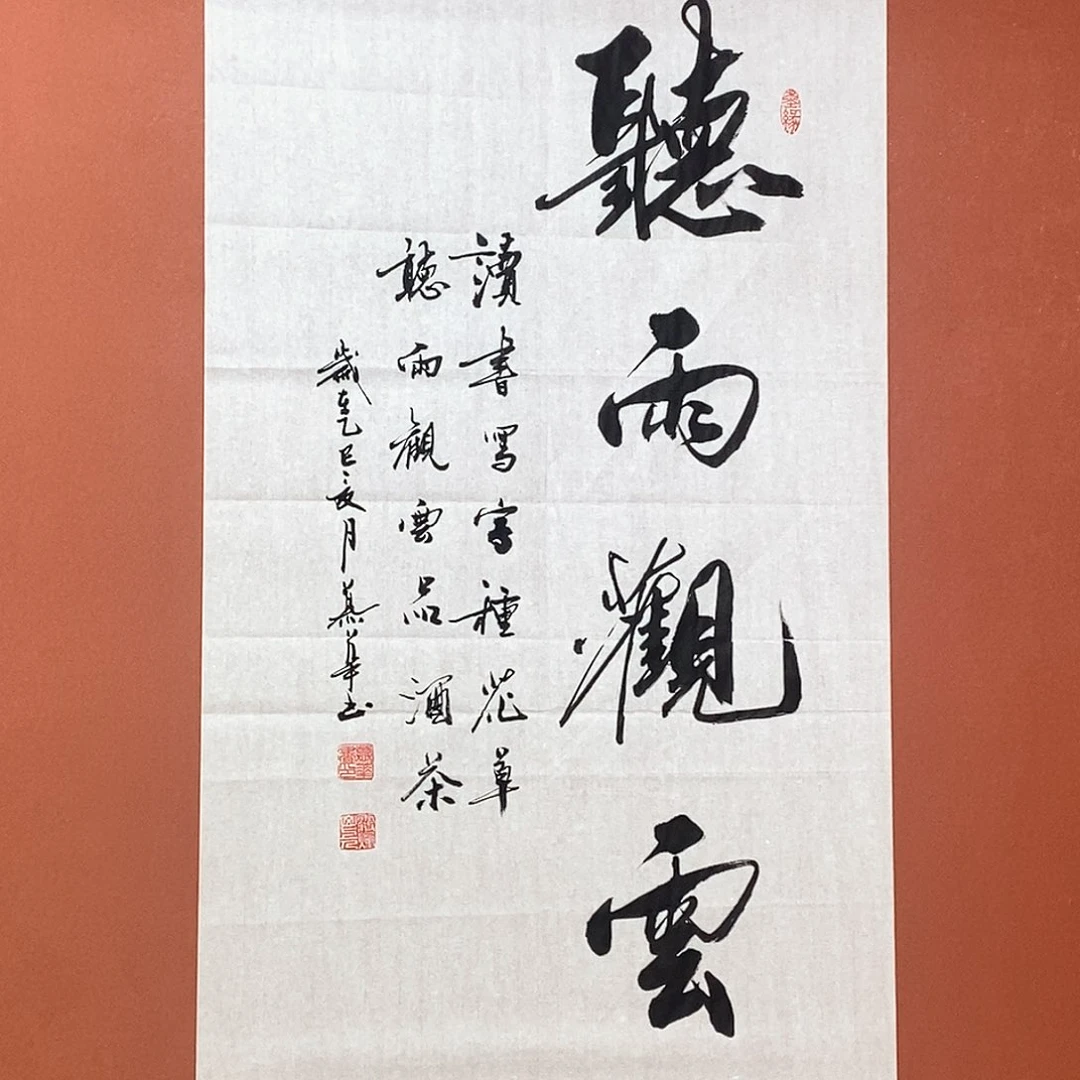 聽雨觀雲
讀書寫字種花草
聽雨觀雲品酒茶
歲在乙巳夏月慕華书